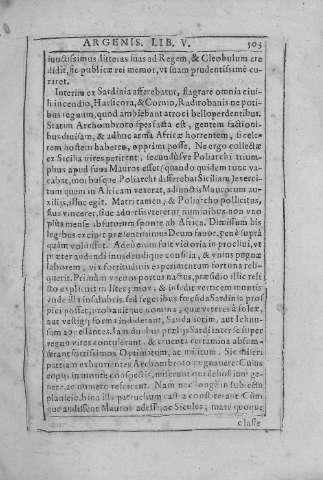 ARGENIS. LIB. V. 503
iunctissimus litteras suas ad Regem, & Cleobulum cre
didit, sic publicæ rei memor, vt suam prudentissimè cu-
raret.
Interim ex Sardinia afferebatur, flagrare omnia ciui-
li incendio, Harsicora, & Cornio, Radirobanis nepoti-
bus regnum, quod ambiebant atroci bello perdentibus.
Statum Archombroto spes facta est, gentem factioni-
bus diuisam, & adhuc arma Africæ horrentem, si cele-
rem hostem haberet, opprimi posse. Ne ergo collectæ
ex Sicilia vires perirent, secundúsve Poliarchi trium-
phus apud suos Mauros esset, quando quidem nunc va-
cabat, morbusque Poliarchi differebat Siciliam, exerci-
tum quem in Africam vexerat, adiunctis Maurorum au-
xiliis, illuc egit. Matri tamen, & Poliarcho pollicitus,
siue vinceret, siue aduerti vteretur numinibus non vno
plus mense abfuturum sponte ab Africa. Dimissum his
legibus excipit præsentissimus Deum fauor, penè suprà
quàm voluisset. Adeò enim fuit victoria in procliui, vt
præter audendi inuadendique consilia, & vnius pugnæ
laborem, vix fortitudini experimentum fortuna reli-
querit. Primùm vacuos portus nactus, præsidio illic
explicuit milites; mox, & insedit verticem montis
vnde illa insalubris, sed segetibus fœcunda Sardinia pros-
pici posset,
aut vestigij forma indiderant, Sandaliotim, aut Ichnu-
sam appellantes. Iam duobus præliis Sardi inter se super
regno vires contulerant, & cruenta certamina absum-
serant fortissimos Optimatum, ac militum. Sic miseri
patriam exhaurientes Archombroto
copiis in monte conspectis, miserunt qui de hostium ge-
nere, ac numero referrent. Nam nec longè in subiecta
planicie, bina illi patruelium castra constiterant. Cùm-
que audissent Mauros adesse, ac Siculos; mare quoque
classe